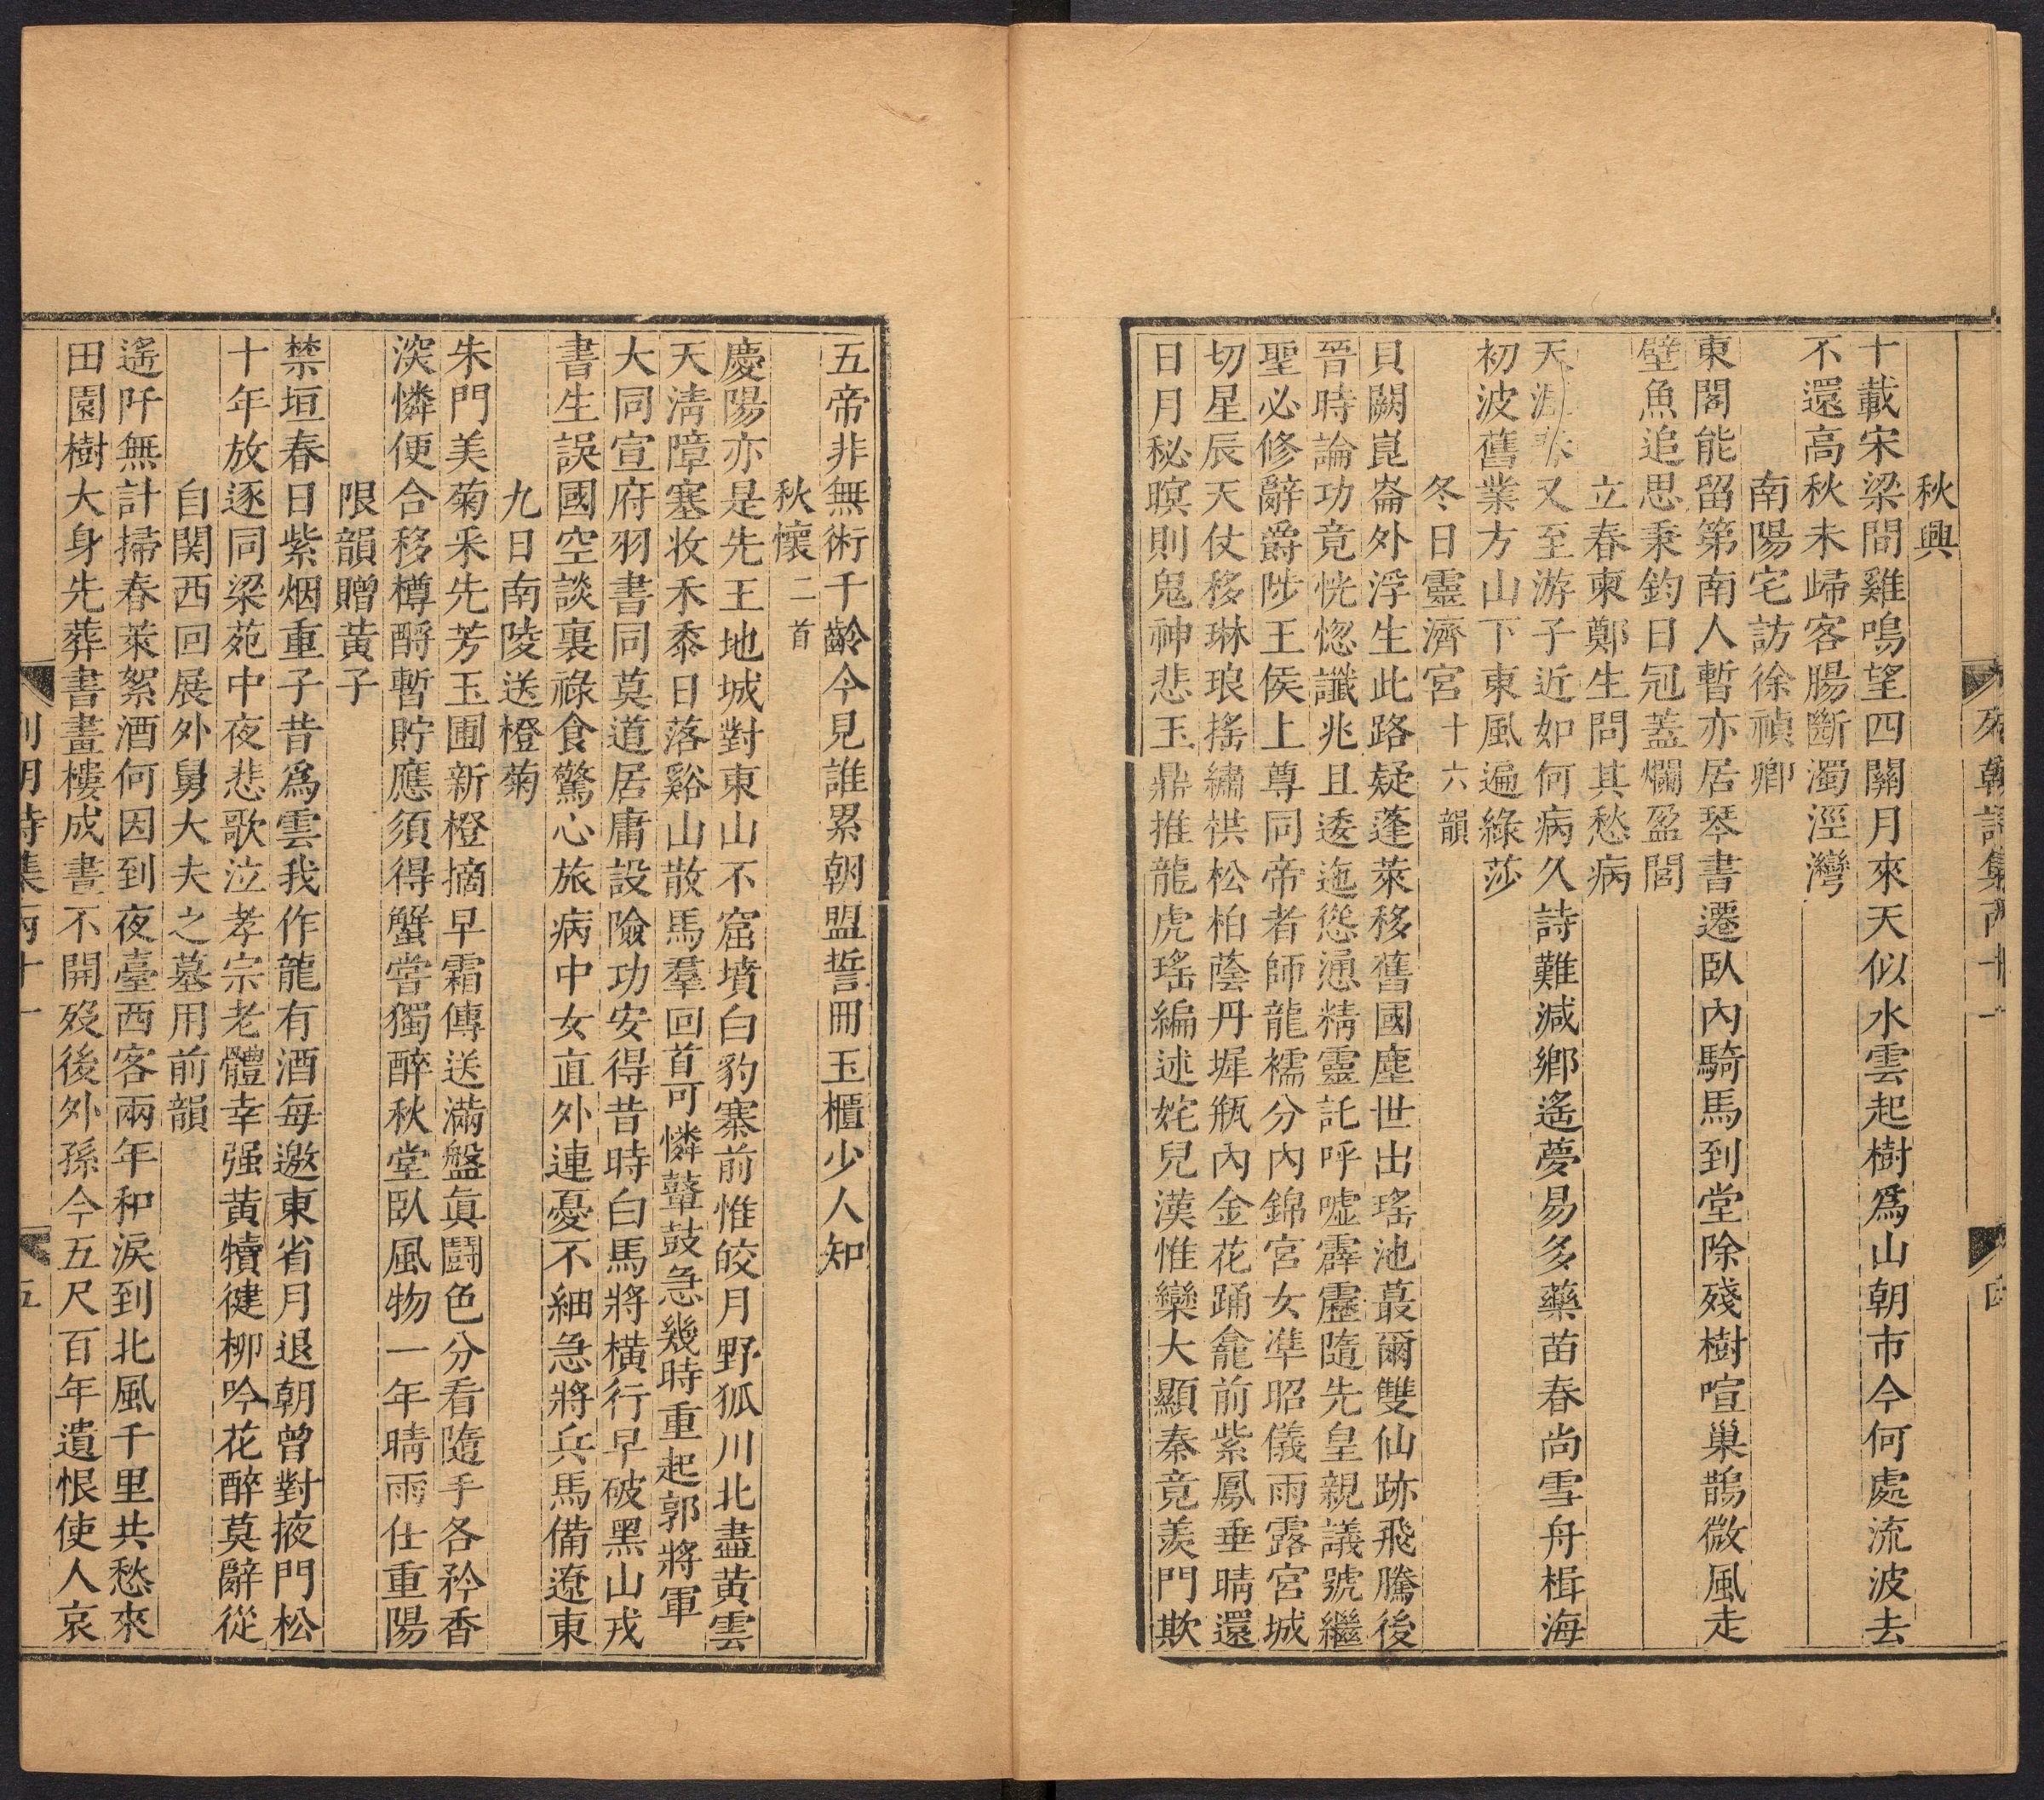 秋興
十載宋梁間雞鳴望四關月來天似水雲起樹爲山朝市今何處流波去
不還高秋未歸客腸斷濁涇灣
南陽宅訪徐禎卿
東閣能留第南人暫亦居琴書遷臥內騎馬到堂除殘樹喧巢鵲微風走
壁魚追思秉釣日冠蓋爛盈閭
立春柬鄭生問其愁病
天涯春又至游子近如何病久詩難減鄉遙夢易多藥苗春尚雪舟楫海
初波舊業方山下東風遍綠莎
冬日靈濟宮十六韻
貝闕崑崙外浮生此路疑蓬萊移舊國塵世出瑤池蕞爾雙仙跡飛騰後
晉時論功竟恍惚讖兆且逶迤慫慂精靈託呼噓霹靂隨先皇親議號繼
聖必修辭爵陟王侯上尊同帝者師龍襦分內錦宮女準昭儀雨露宮城
切星辰天仗移琳琅搖繡栱松柏蔭丹墀瓶內金花踊龕前紫鳳垂晴還
日月秘暝則鬼神悲玉鼎推龍虎瑤編述姹兒漢惟欒大顯秦竟羨門欺
五帝非無術千齡今見誰累朝盟誓冊玉櫃少人知
秋懷二首
慶陽亦是先王地城對東山不窋墳白豹寨前惟皎月野狐川北盡黃雲
天清障塞收禾黍日落谿山散馬羣回首可憐鼙鼓急幾時重起郭將軍
大同宣府羽書同莫道居庸設險功安得昔時白馬將橫行早破黑山戎
書生誤國空談裏祿食驚心旅病中女直外連憂不細急將兵馬備遼東
九日南陵送橙菊
朱門美菊采先芳玉圃新橙摘早霜傳送滿盤眞鬬色分看隨手各矜香
深憐便合移樽酹暫貯應須得蟹嘗獨醉秋堂臥風物一年晴雨仕重陽
限韻贈黃子
禁垣春日紫烟重子昔爲雲我作龍有酒每邀東省月退朝曾對掖門松
十年放逐同梁苑中夜悲歌泣孝宗老體幸强黃犢健柳吟花醉莫辭從
自関西回展外舅大夫之墓用前韻
遙阡無計掃春萊絮酒何因到夜臺西客兩年和淚到北風千里共愁來
田園樹大身先葬書畫樓成晝不開歿後外孫今五尺百年遺恨使人哀
列朝詩集丙十一
五